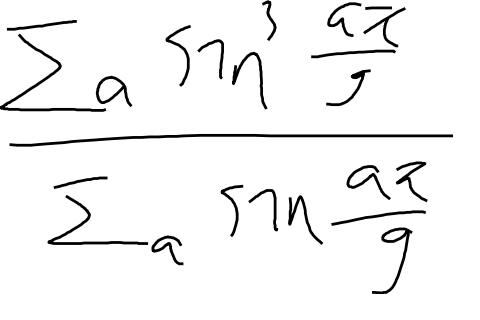 \frac{\sum_a \sin^3 \frac{a\pi}{9}}{\sum_a \sin \frac{a\pi}{9}}